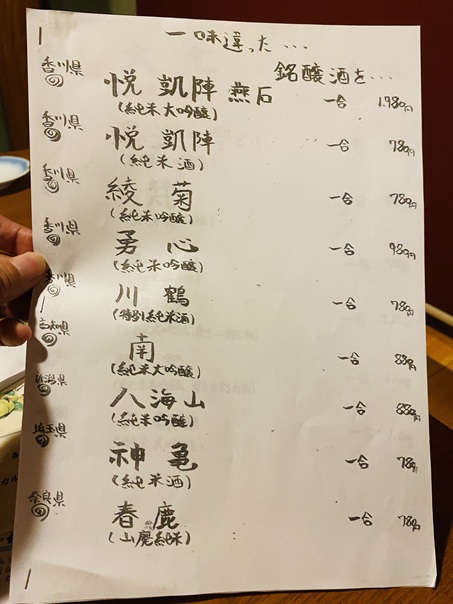 一味違った...
銘醸酒を...
香川県 悦 凱陣 燕石 一合 1.980円
(純米大吟醸)
香川県 悦 凱陣 一合 780円
(純米酒)
香川県 綾菊 一合 780円
(純米吟醸)
香川県 勇心 一合 980円
(純米吟醸)
香川県 川鶴 一合 780円
(特別純米酒)
高知県 南 一合 880円
(純米大吟醸)
新潟県 八海山 一合 880円
(純米吟醸)
埼玉県 神亀 一合 780円
(純米酒)
奈良県 春鹿 一合 780円
(山廃純米)